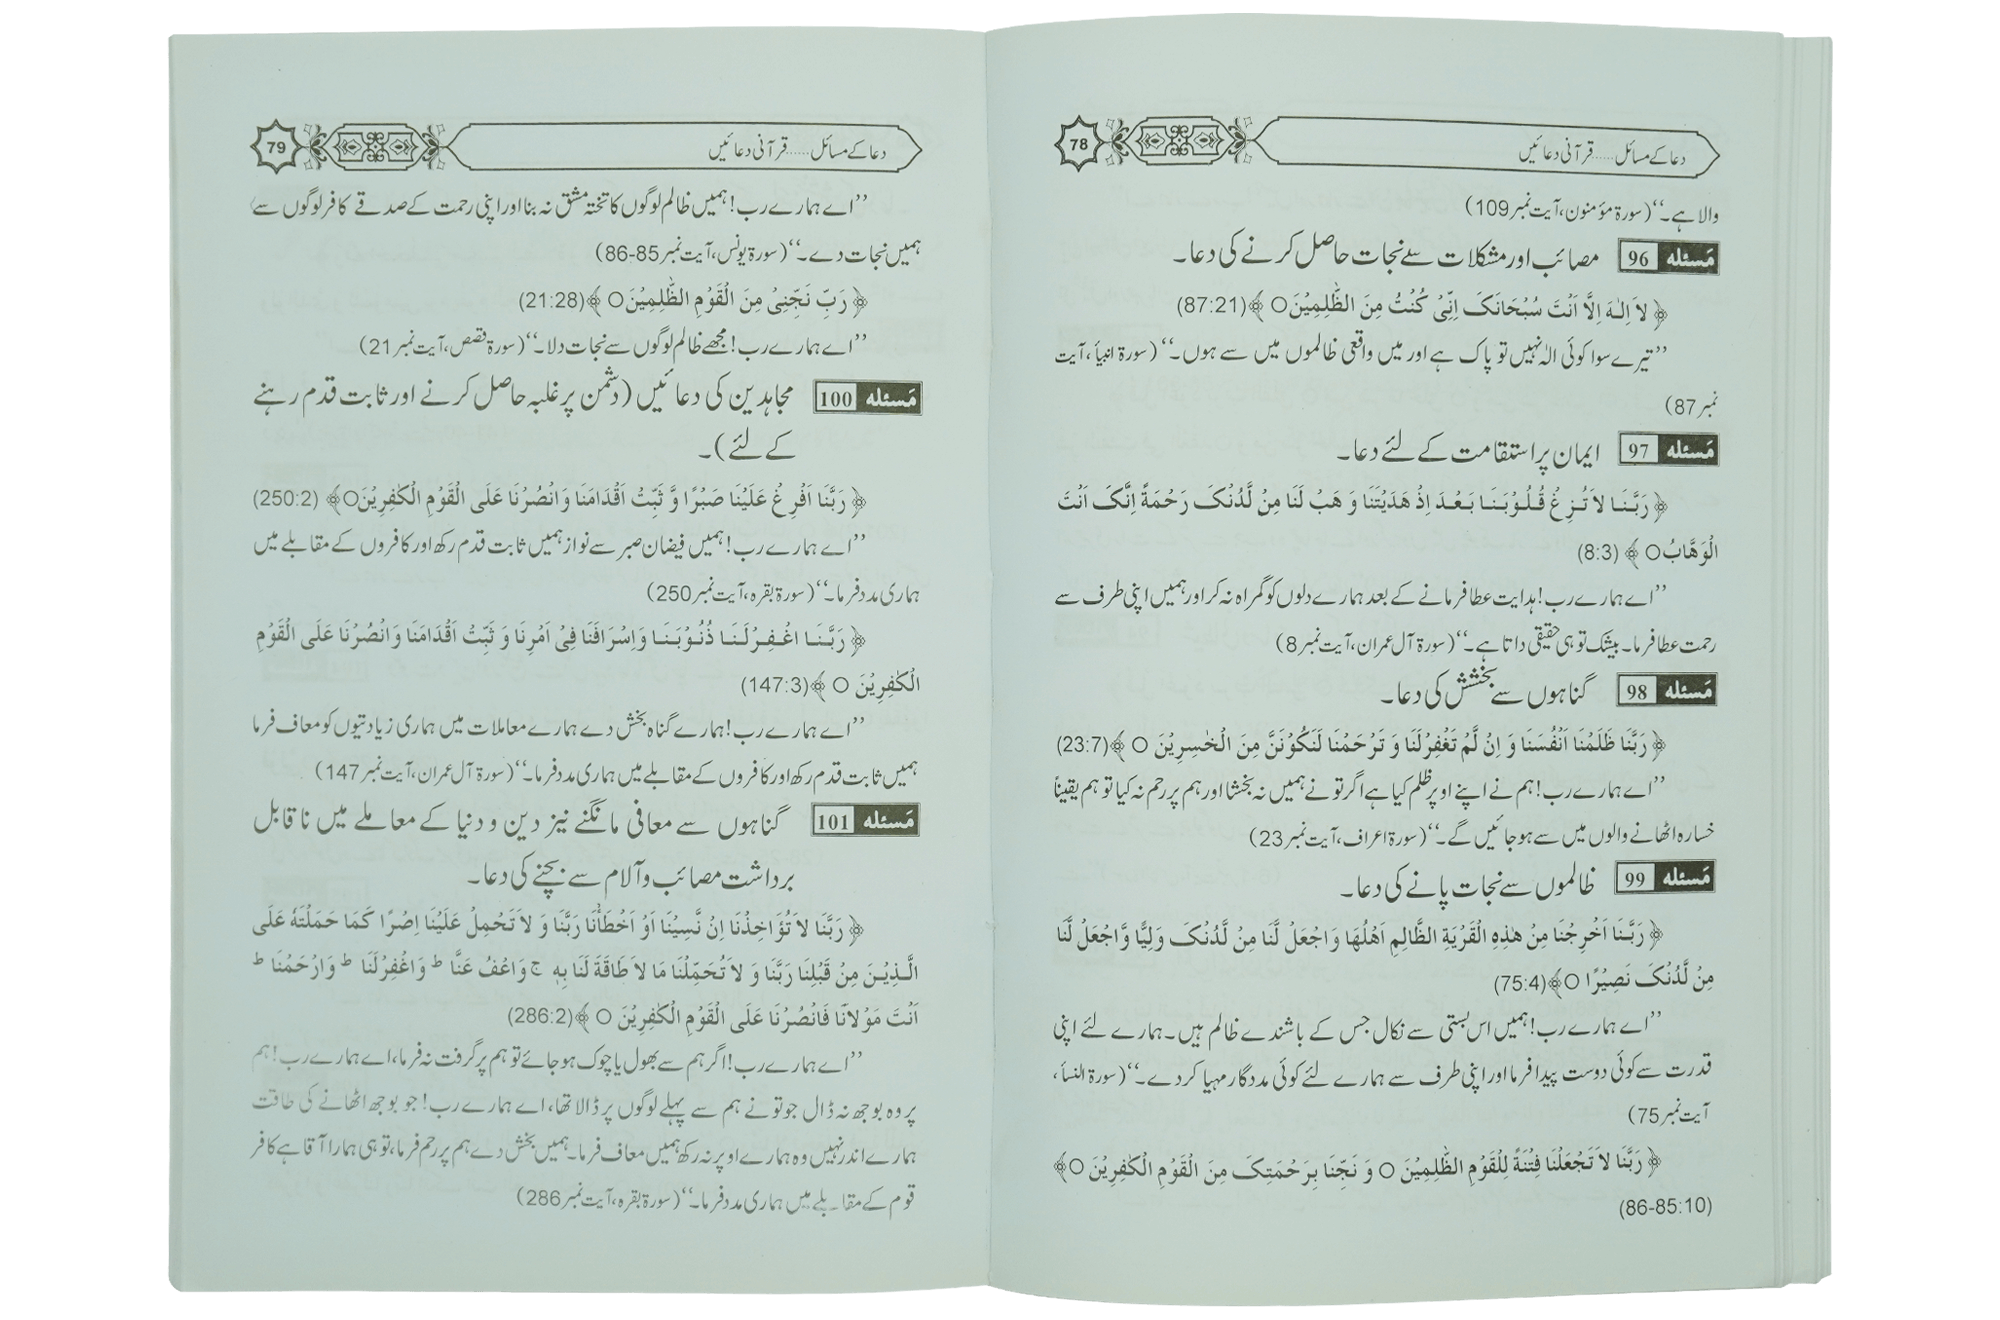 دعا کے مسائل......قرآنی دعائیں
78
والا ہے۔‘‘(سورۃ مؤمنون، آیت نمبر109)
مَسئلہ 96 مصائب اور مشکلات سے نجات حاصل کرنے کی دعا۔
﴿ لاَ اِلٰـہَ اِلَّا اَنْتَ سُبْحَانَکَ اِنِّیْ کُنْتُ مِنَ الظّٰلِمِیْنَ○ ﴾(87:21)
’’تیرے سوا کوئی الٰہ نہیں تو پاک ہے اور میں واقعی ظالموں میں سے ہوں۔‘‘(سورۃ انبیأ، آیت
نمبر87)
مَسئلہ 97 ایمان پر استقامت کے لئے دعا۔
﴿ رَبَّـنَـا لاَ تُـزِغْ قُـلُـوْبَـنَـا بَـعْـدَ اِذْ ھَدَیْتَنَا وَ ھَبْ لَنَا مِنْ لَّدُنْکَ رَحْمَۃً اِنَّکَ اَنْتَ
الْوَھَّابُ○ ﴾ (8:3)
’’اے ہمارے رب! ہدایت عطا فرمانے کے بعد ہمارے دلوں کو گمراہ نہ کر اور ہمیں اپنی طرف سے
رحمت عطا فرما۔ بیشک تو ہی حقیقی داتا ہے۔‘‘(سورۃ آل عمران، آیت نمبر8)
مَسئلہ 98 گناہوں سے بخشش کی دعا۔
﴿ رَبَّنَا ظَلَمْنَا اَنْفُسَنَا وَ اِنْ لَّمْ تَغْفِرْلَنَا وَ تَرْحَمْنَا لَنَکُوْنَنَّ مِنَ الْخٰسِرِیْنَ ○ ﴾(23:7)
’’اے ہمارے رب! ہم نے اپنے اوپر ظلم کیا ہے اگر تو نے ہمیں نہ بخشا اور ہم پر رحم نہ کیا تو ہم یقیناً
خسارہ اٹھانے والوں میں سے ہو جائیں گے۔‘‘(سورۃ اعراف، آیت نمبر23)
مَسئلہ 99 ظالموں سے نجات پانے کی دعا۔
﴿ رَبَّـنَا اَخْرِجْنَا مِنْ ھٰذِہِ الْقَرْیَۃِ الظَّالِمِ اَھْلُھَا وَ اجْعَلْ لَّنَا مِنْ لَّدُنْکَ وَلِیًّا وَّاجْعَلْ لَّنَا
مِنْ لَّدُنْکَ نَصِیْرًا ○﴾(75:4)
’’اے ہمارے رب! ہمیں اس بستی سے نکال جس کے باشندے ظالم ہیں۔ ہمارے لئے اپنی
قدرت سے کوئی دوست پیدا فرما اور اپنی طرف سے ہمارے لئے کوئی مددگار مہیا کر دے۔‘‘(سورۃ النسأ،
آیت نمبر75)
﴿ رَبَّنَا لاَ تَجْعَلْنَا فِتْنَۃً لِّلْقَوْمِ الظّٰلِمِیْنَ ○ وَ نَجِّنَا بِرَحْمَتِکَ مِنَ الْقَوْمِ الْکٰفِرِیْنَ ○﴾
(86-85:10)
دعا کے مسائل......قرآنی دعائیں
79
’’اے ہمارے رب! ہمیں ظالم لوگوں کا تختہ مشق نہ بنا اور اپنی رحمت کے صدقے کافر لوگوں سے
ہمیں نجات دے۔‘‘(سورۃ یونس، آیت نمبر85-86)
﴿ رَبِّ نَجِّنِیْ مِنَ الْقَوْمِ الظّٰلِمِیْنَ○ ﴾(21:28)
’’اے ہمارے رب! مجھے ظالم لوگوں سے نجات دلا۔‘‘(سورۃ قصص، آیت نمبر21)
مَسئلہ 100 مجاہدین کی دعائیں (دشمن پر غلبہ حاصل کرنے اور ثابت قدم رہنے
کے لئے)۔
﴿ رَبَّنَا اَفْرِغْ عَلَیْنَا صَبْرًا وَّ ثَبِّتْ اَقْدَامَنَا وَانْصُرْنَا عَلَی الْقَوْمِ الْکٰفِرِیْنَ○﴾ (250:2)
’’اے ہمارے رب! ہمیں فیضان صبر سے نواز ہمیں ثابت قدم رکھ اور کافروں کے مقابلے میں
ہماری مدد فرما۔‘‘(سورۃ بقرہ، آیت نمبر250)
﴿ رَبَّـنَـا اغْـفِـرْلَـنَـا ذُنُـوْبَـنَـا وَاِسْرَافَنَا فِیْ اَمْرِنَا وَ ثَبِّتْ اَقْدَامَنَا وَانْصُرْنَا عَلَی الْقَوْمِ
الْکٰفِرِیْنَ ○ ﴾(147:3)
’’اے ہمارے رب! ہمارے گناہ بخش دے ہمارے معاملات میں ہماری زیادتیوں کو معاف فرما
ہمیں ثابت قدم رکھ اور کافروں کے مقابلے میں ہماری مدد فرما۔‘‘(سورۃ آل عمران، آیت نمبر147)
مَسئلہ 101 گناہوں سے معافی مانگنے نیز دین و دنیا کے معاملے میں ناقابل
برداشت مصائب و آلام سے بچنے کی دعا۔
﴿ رَبَّنَا لاَ تُؤَاخِذْنَا اِنْ نَّسِیْنَا اَوْ اَخْطَأْنَا رَبَّنَا وَ لاَ تَحْمِلْ عَلَیْنَا اِصْرًا کَمَا حَمَلْتَہٗ عَلَی
الَّـذِیْـنَ مِنْ قَبْلِنَا رَبَّنَا وَ لاَ تُحَمِّلْنَا مَا لاَ طَاقَۃَ لَنَا بِہٖ ج وَاعْفُ عَنَّا ط وَاغْفِرْلَنَا ط وَارْحَمْنَا ط
اَنْتَ مَوْلاَنَا فَانْصُرْنَا عَلَی الْقَوْمِ الْکٰفِرِیْنَ ○ ﴾(286:2)
’’اے ہمارے رب! اگر ہم سے بھول یا چوک ہو جائے تو ہم پر گرفت نہ فرما، اے ہمارے رب! ہم
پر وہ بوجھ نہ ڈال جو تو نے ہم سے پہلے لوگوں پر ڈالا تھا، اے ہمارے رب! جو بوجھ اٹھانے کی طاقت
ہمارے اندر نہیں وہ ہمارے اوپر نہ رکھ ہمیں معاف فرما۔ ہمیں بخش دے ہم پر رحم فرما، تو ہی ہمارا آقا ہے کافر
قوم کے مقابلے میں ہماری مدد فرما۔‘‘(سورۃ بقرہ، آیت نمبر286)